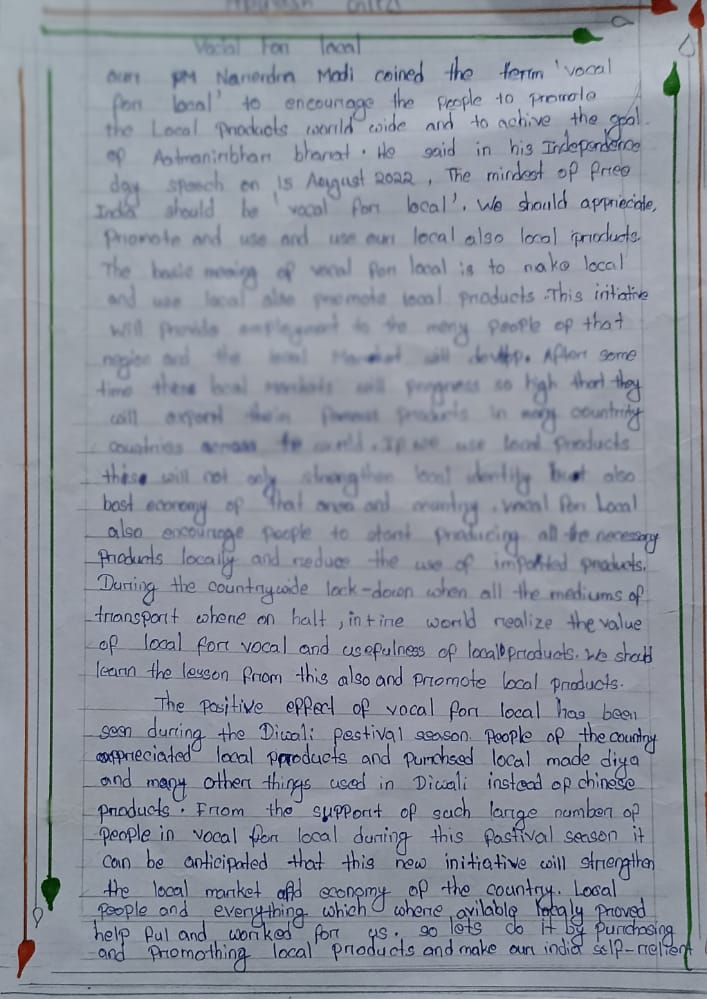 Vocal For local
our PM Narendra Modi coined the term 'vocal
for local' to encourage the people to promote
the Local products world wide and to achive the goal
of Aatmanirbhar bharat. He said in his Independence
day speech on 15 August 2022, The mindest of free
India should be 'vocal for local'. We should appreciate,
promote and use and use our local also local products.
The basic mening of vocal for local is to make local
and use local also promote local products. This initiative
will provide employment to the many people of that
region and the local Market will develop. After some
time these local markets will progress so high that they
will export their famous products in many countrity
countries across to world. If we use local products
these will not only strengthen local identity but also
bost economy of that area and country. vocal for Local
also encourage people to start producing all the necessary
products locally and reduce the use of imported products.
During the countrywide lock-down when all the mediums of
transport where on halt, intire world realize the value
of local for vocal and usefulness of local products. We should
learn the lesson from this also and promote local products.
The positive effect of vocal for local has been
seen during the Diwali festival season. People of the country
appreciated local products and purchsed local made diya
and many other things used in Diwali instead of chinese
products. From the support of such large number of
people in vocal for local during this fastival season it
can be anticipated that this new initiative will strengthen
the local market and economy of the country. Local
people and everything which where avilable localy proved
help ful and worked for us. so lets do it by purchasing
and promothing local products and make our india self-relient